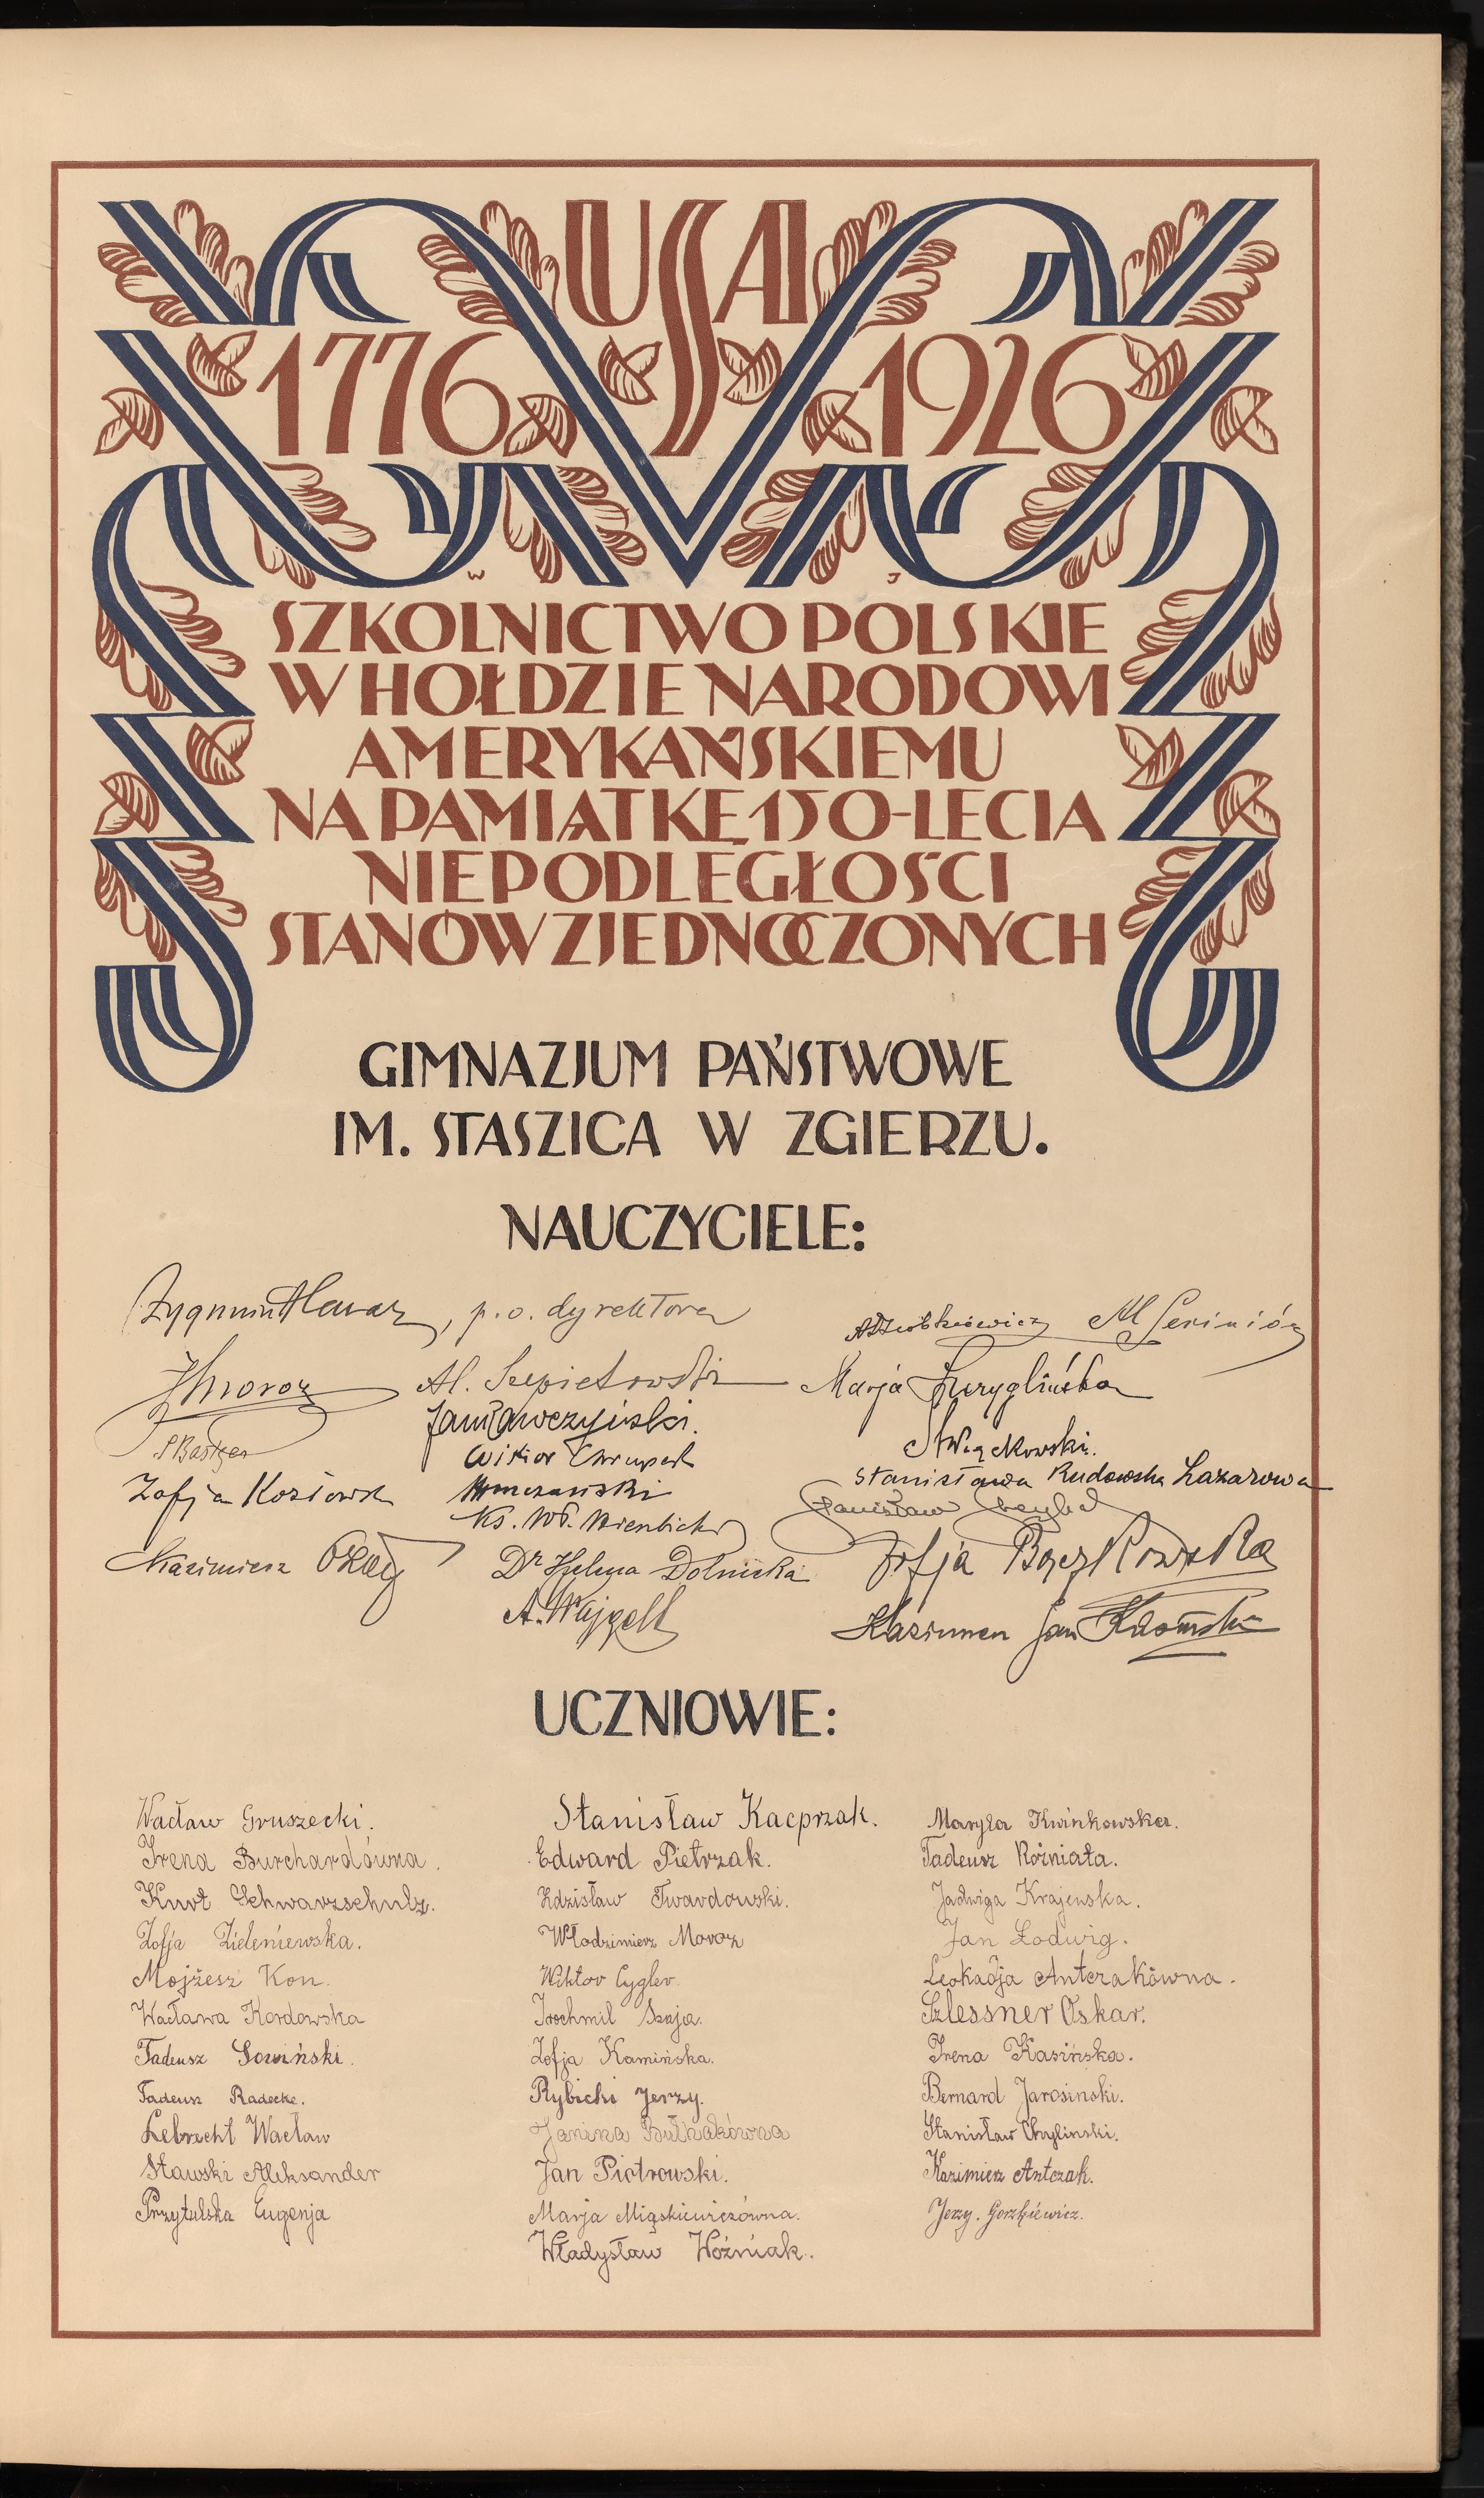 USA
1776 1926
W J
SZKOLNICTWO POLSKIE
W HOŁDZIE NARODOWI
AMERYKAŃSKIEMU
NA PAMIĄTKĘ 150-LECIA
NIEPODLEGŁOŚCI
STANÓW ZJEDNOCZONYCH
GIMNAZJUM PAŃSTWOWE
IM. STASZICA W ZGIERZU.
NAUCZYCIELE:
Zygmunt , p.o. dyrektora
Al. Szepietowski
Marja
Jan Wawczyński.
Wiktor
Stanisława Rudowska Lazarowa
Zofja
Stanisław
Ks. Wł.
Kazimierz
Dr Helena Dolnicka
Zofja
A. Wajgelt
Kazimierz Jan
UCZNIOWIE:
Wacław Gruszecki.
Irena Burchardówna.
Kurt Schwarzschulz.
Zofja Zieleniewska.
Mojżesz Kon.
Wacława Kordowska
Tadeusz Sowiński.
Tadeusz Radecke.
Lebrecht Wacław
Stawski Aleksander
Przytulska Eugenja
Stanisław Kacprzak.
Edward Pietrzak.
Zdzisław Twardowski.
Włodzimierz Moroz
Wiktor Cygler.
Szaja.
Zofja Kamińska.
Rybicki Jerzy.
Janina Bułhakówna
Jan Piotrowski.
Marja Miąskiewiczówna.
Władysław Woźniak.
Maryla Kwinkowska.
Tadeusz Różniata.
Jadwiga Krajewska.
Jan Lodwig.
Leokadja Antczakówna.
Szlessner Oskar.
Irena Kasińska.
Bernard Jarosinski.
Stanisław Chylinski.
Kazimierz Antczak.
Jerzy. Gorzkiewicz.